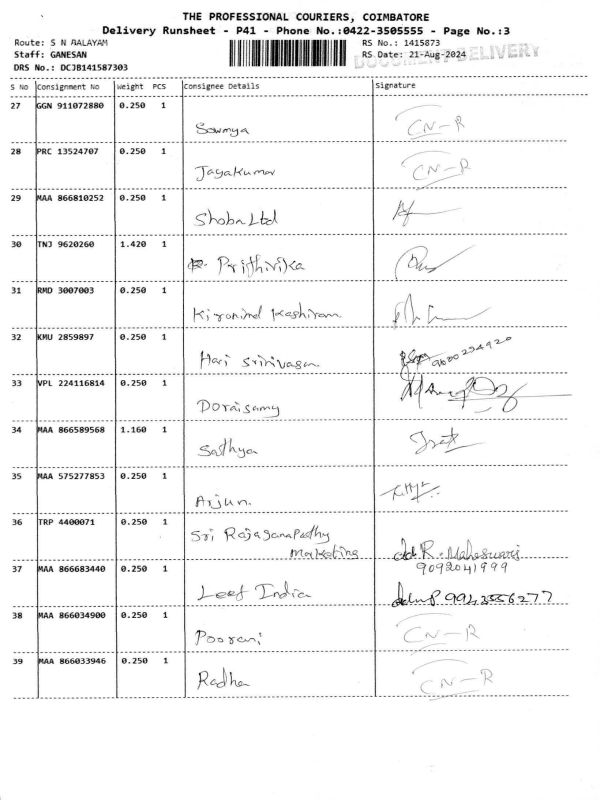 THE PROFESSIONAL COURIERS, COIMBATORE
Delivery Runsheet - P41 - Phone No.:0422-3505555 - Page No.:3
Route: S N AALAYAM
RS No.: 1415873
Staff: GANESAN
RS Date: 21-Aug-2024
DOCUMENT DELIVERY
DRS No.: DCJB141587303
S No Consignment No Weight PCS Consignee Details Signature
27 GGN 911072880 0.250 1
Sowmya CN-R
28 PRC 13524707 0.250 1
Jayakumar CN-R
29 MAA 866810252 0.250 1
Shoba Ltd
30 TNJ 9620260 1.420 1
Prithivika
31 RMD 3007003 0.250 1
Kashiram
32 KMU 2859897 0.250 1
Hari Srinivasan
33 VPL 224116814 0.250 1
Doraisamy
34 MAA 866589568 1.160 1
Sathya
35 MAA 575277853 0.250 1
Arjun.
36 TRP 4400071 0.250 1
Sri Rajaganapathy
Marketing R. Maheswari
9092041999
37 MAA 866683440 0.250 1
Leef India 9943556277
38 MAA 866034900 0.250 1
Poorani CN-R
39 MAA 866033946 0.250 1
Radha CN-R